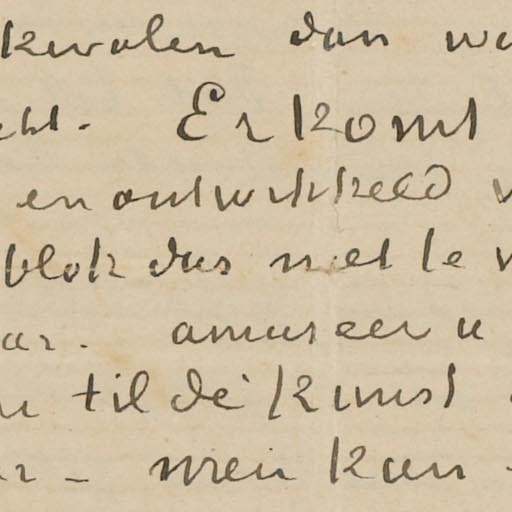 kwalen dan
cht. Er komt
en ontwikkeld
blok dus niet te
ar. amuseer u
til de kunst
men kan